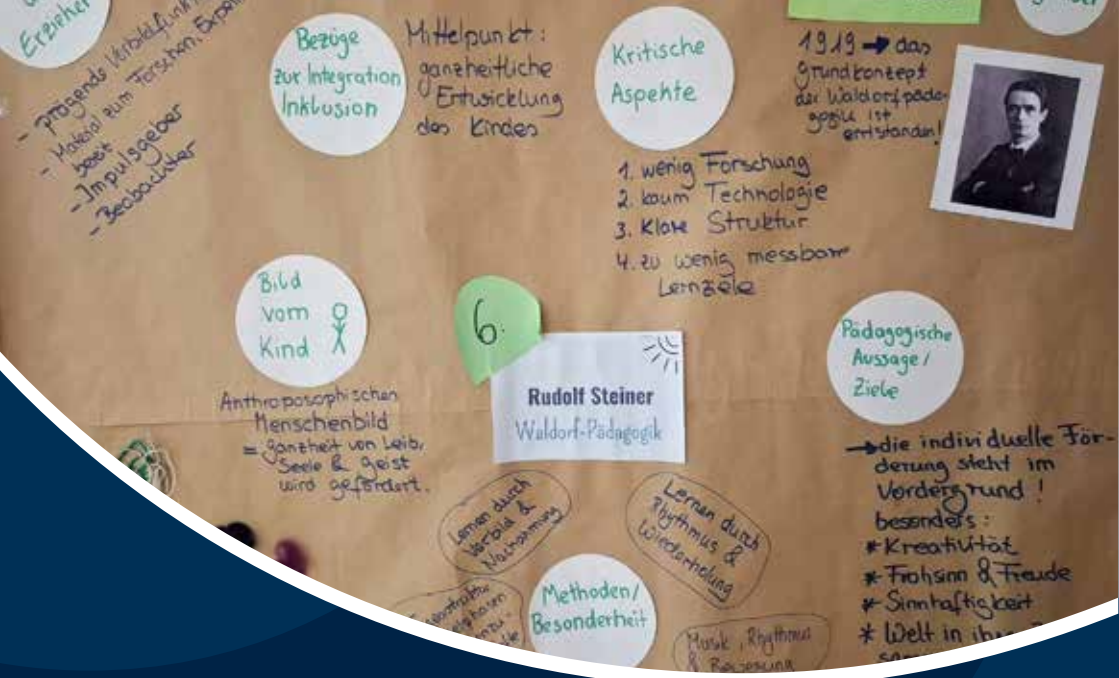 Erzieher
- prägends Vorbildfunkt
- Material zum Forschen, Exper
bereit
- Impulsgeber
- Beobachter
Bezüge
zur Integration
Inklusion
Mittelpunkt:
ganzheitliche
Entwicklung
des Kindes
Kritische
Aspekte
1. wenig Forschung
2. kaum Technologie
3. Klare Struktur
4. zu wenig messbare
Lernziele
1919 → das
Grundkonzept
der Waldorfpäda-
gogik ist
entstanden!
Bild
vom
Kind
Anthroposophischen
Menschenbild
= ganzheit von Leib,
Seele & Geist
wird gefördert.
6.
Rudolf Steiner
Waldorf-Pädagogik
Pädagogische
Aussage/
Ziele
→ die individuelle För-
derung steht im
Vordergrund!
besonders:
* Kreativität
* Frohsinn & Freude
* Sinnhaftigkeit
* Welt in
Lernen durch
Vorbild &
Nachahmung
Lernen durch
Rhythmus &
Wiederholung
Methoden/
Besonderheit
Musik, Rhythmus
& Bewegung